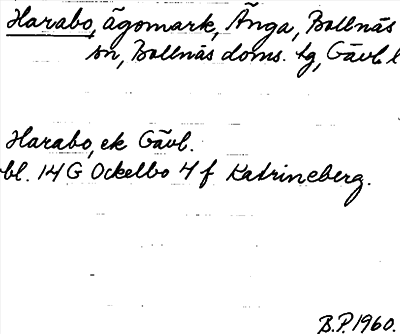 Harabo, ägomark, Änga, Bollnäs
sn, Bollnäs doms. tg, Gävl l
Harabo, ek Gävl.
bl. 14G Ockelbo 4f Katrineberg.
B.P. 1960.